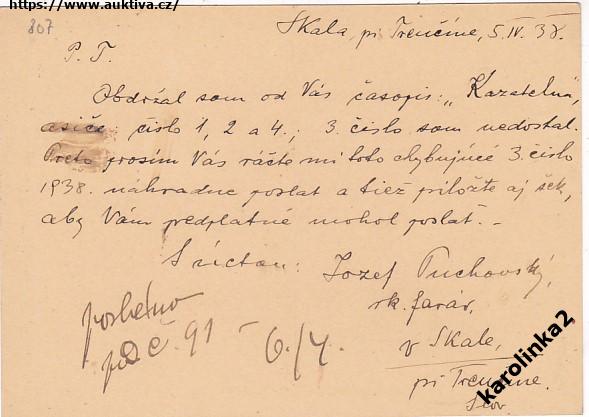 https://www.auktiva.cz/
807
Skala, pri Trenčíne, 5.IV.38.
P. T.
Obdržal som od Vás časopis: „Kazateľna",
číslo 1, 2 a 4.; 3. číslo som nedostal.
Preto prosím Vás ráčte mi toto chybujúcé 3. číslo
1938. náhradne poslať a tiež priložte aj šek,
aby Vám predplatné mohol poslať. –
S úctou:
Jozef Púchovský,
rk. farár,
v Skale,
pri Trenčíne.
Slov.
č. 91 – 6./4.
karolinka2